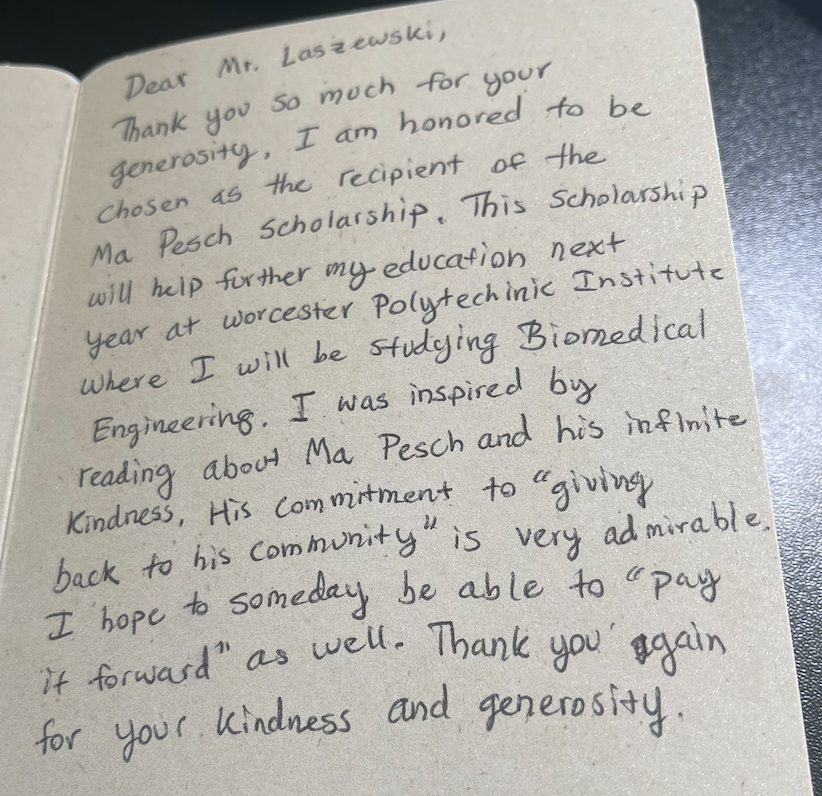 Dear Mr. Laszewski,
Thank you so much for your
generosity, I am honored to be
chosen as the recipient of the
Ma Pesch Scholarship. This Scholarship
will help further my education next
year at Worcester Polytechinic Institute
where I will be studying Biomedical
Engineering. I was inspired by
reading about Ma Pesch and his infinite
Kindness, His commitment to "giving
back to his community" is very admirable.
I hope to someday be able to "pay
it forward" as well. Thank you again
for your kindness and generosity.